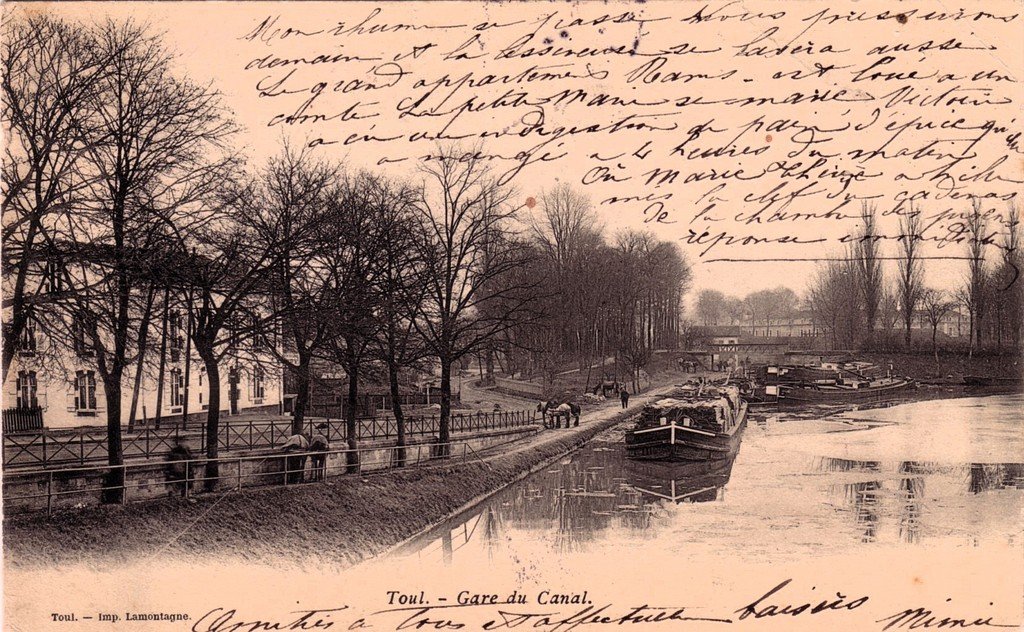 Mon rhume se passe Nous presserons
demain et la assesneuse se lavera aussé
Le grand appartement Rams - est loué a un
comte La petite Marie se marie Victoire
a eu un indigestion de pain d'épice qu'elle
a mangé a 4 heures du matin
Où Marie Thérèze a t'elle
mis la clef du cadenas
de la chambre des
réponse
Toul. - Gare du Canal.
Toul. — Imp. Lamontagne.
Amitiés a Tous et affectueux baisers Mimie